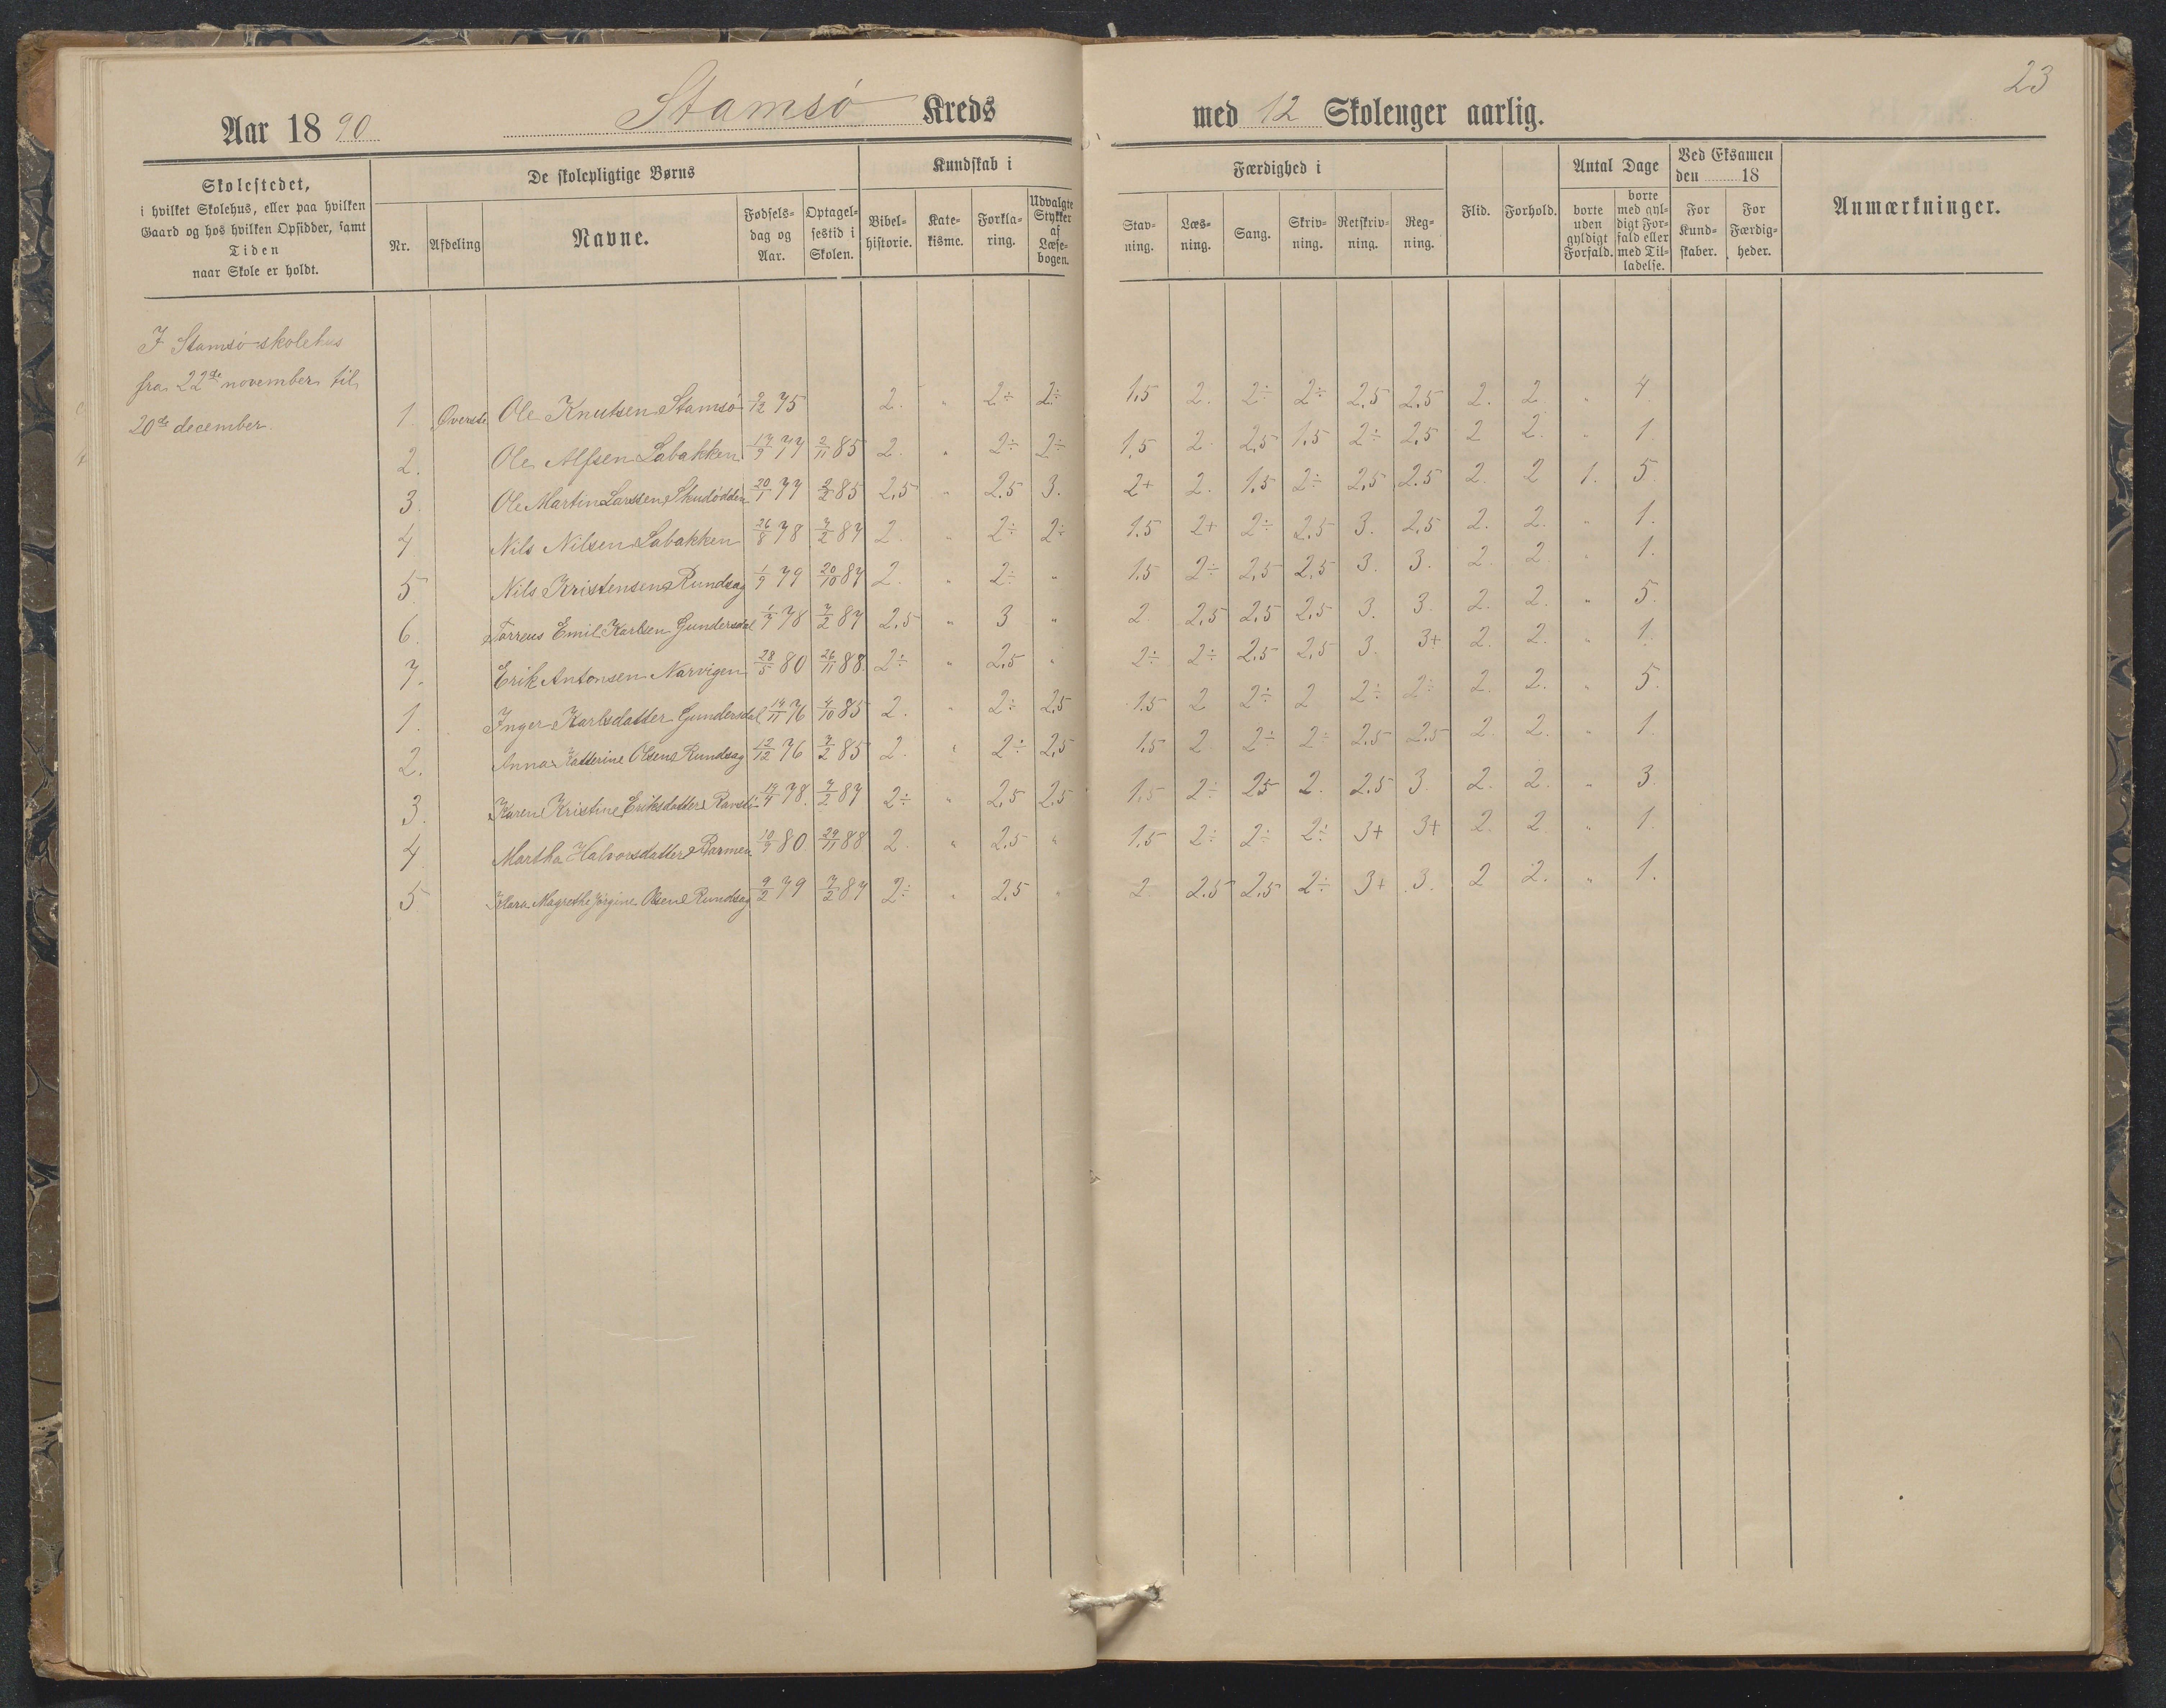 23
Aar 1890 Stamsø Kreds med 12 Skoleuger aarlig.
Skolestedet,
i hvilket Skolehus, eller paa hvilken
Gaard og hos hvilken Opsidder, samt
Tiden
naar Skole er holdt.
De skolepligtige Børns
Nr. Afdeling Navne. Fødselsdag og Aar. Optagelsestid i Skolen.
Kundskab i
Bibelhistorie. Katekisme. Forklaring. Udvalgte Stykker af Læsebogen.
Færdighed i
Stavning. Læsning. Sang. Skrivning. Retskrivning. Regning.
Flid. Forhold.
Antal Dage
borte uden gyldigt Forfald. borte med gyldigt Forfald eller med Tilladelse.
Ved Eksamen den 18
For Kundskaber. For Færdigheder.
Anmærkninger.
I Stamsø skolehus
fra 22de november til
20de december.
1. Øverste Ole Knutsen Stamsø 9/12 75 2. „ 2÷ 2÷ 1.5 2. 2÷ 2÷ 2,5 2,5 2. 2 „ 4.
2. Ole Alfsen Labakken 17/9 77 2/11 85 2. „ 2÷ 2÷ 1,5 2. 2,5 1.5 2÷ 2,5 2 2. „ 1.
3. Ole Martin Larssen Skudødden 20/1 77 2/2 85 2,5 „ 2.5 3. 2+ 2. 1.5 2÷ 2,5 2.5 2. 2 1. 5.
4 Nils Nilsen Labakken 26/8 78 7/2 87 2. „ 2÷ 2÷ 1.5 2+ 2÷ 2.5 3. 2,5 2. 2. „ 1.
5. Nils Kristensen Rundsag 1/9 79 20/10 87 2. „ 2÷ „ 1.5 2÷ 2,5 2,5 3. 3. 2. 2 „ 1.
6. Torreus Emil Karlsen Gundersdal 1/7 78 7/2 87 2,5 „ 3 „ 2 2,5 2.5 2,5 3. 3. 2. 2. „ 5.
7. Erik Antonsen Narvigen 28/5 80 26/11 88. 2÷ „ 2,5 „ 2÷ 2÷ 2.5 2,5 3. 3+ 2. 2. „ 1.
1. Inger Karlsdatter Gundersdal 14/11 76 4/10 85 2. „ 2÷ 2,5 1.5 2 2÷ 2 2÷ 2÷ 2. 2. „ 5.
2. Anna Katterine Olsen Rundsag 12/12 76 7/2 85 2. „ 2÷ 2,5 1.5 2 2÷ 2÷ 2.5 2.5 2. 2. „ 1.
3. Karen Kristine Eriksdatter 78. 7/2 87 2÷ „ 2,5 2.5 1.5 2÷ 25 2. 2.5 3. 2. 2. „ 3.
4 Martha Halvorsdatter Rarmen 10/9 80 29/11 88 2. „ 2.5 „ 1.5 2÷ 2÷ 2÷ 3+ 3+ 2. 2. „ 1.
5 Klara Magrethe Jørgine Olsen Rundsag 9/2 79 7/2 87 2÷ „ 2.5 „ 2 2.5 2.5 2÷ 3+ 3. 2 2. „ 1.